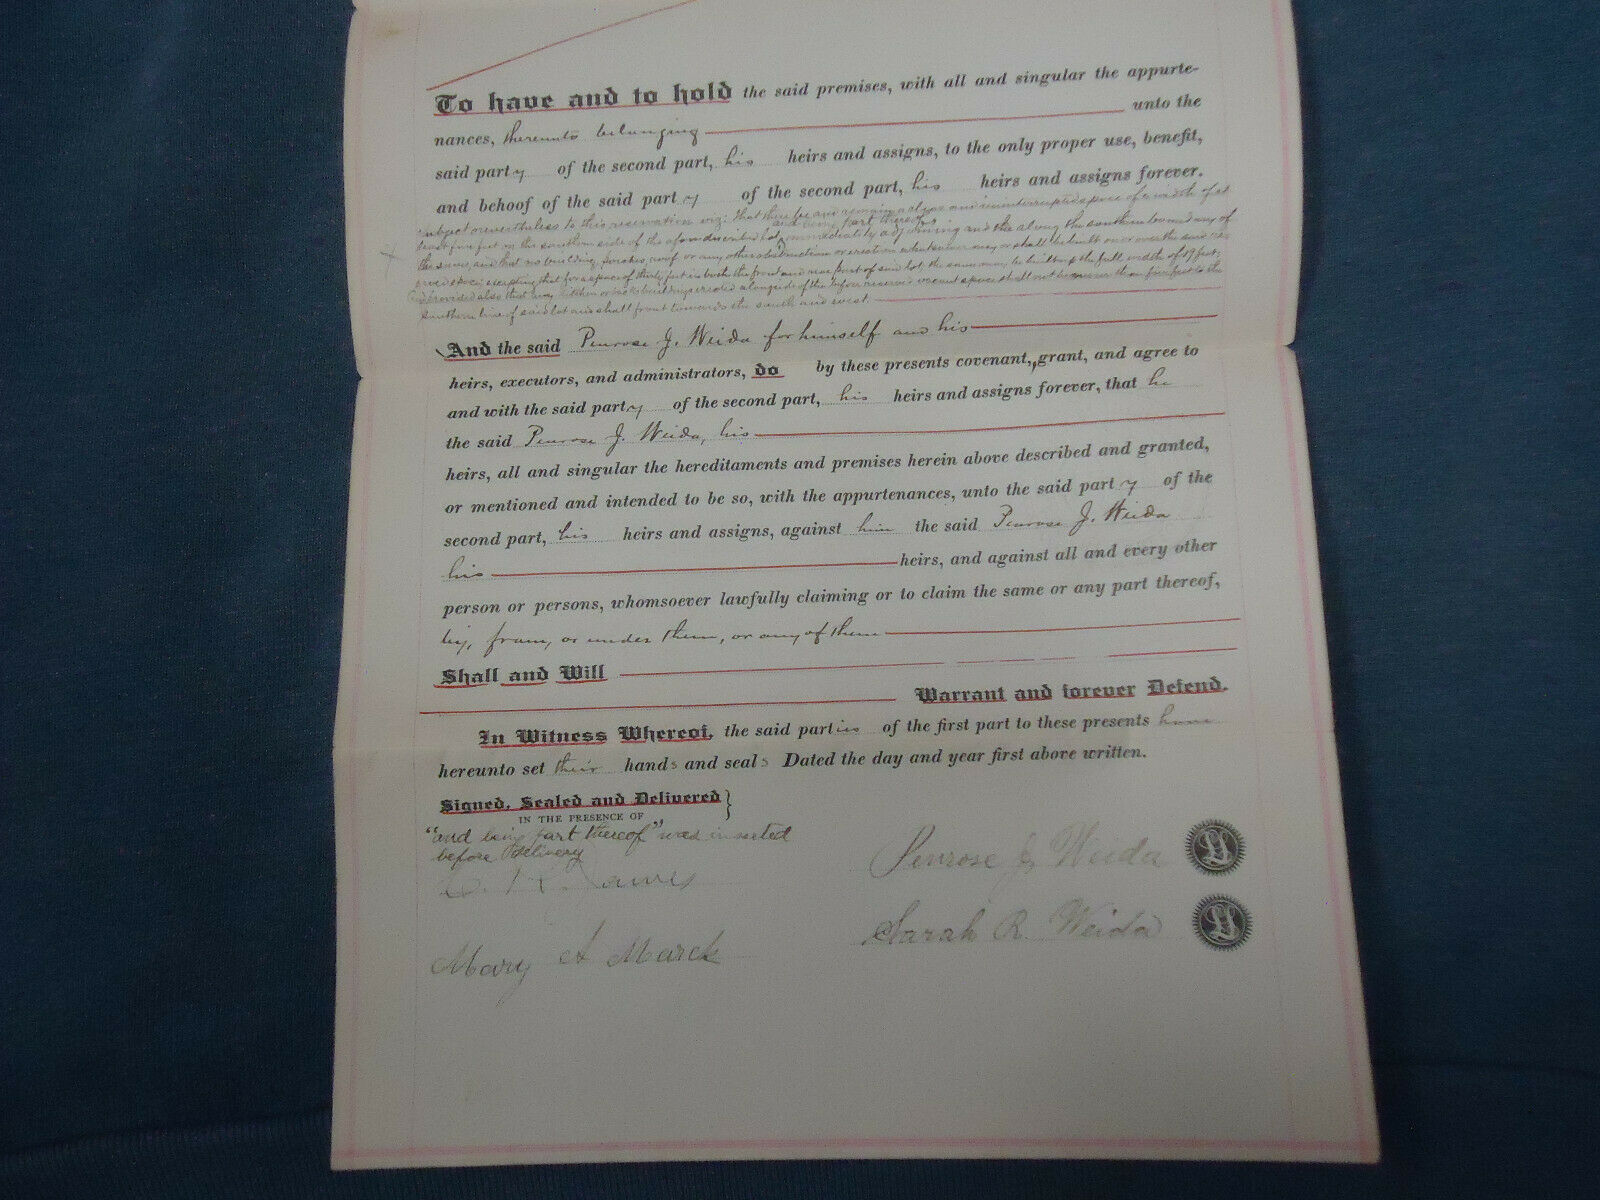 To have and to hold the said premises, with all and singular the appurte-
nances, thereunto belonging unto the
said party of the second part, his heirs and assigns, to the only proper use, benefit,
and behoof of the said party of the second part, his heirs and assigns forever.
subject nevertheless to this reservation viz: That there be and remain a clear and uninterrupted space of a width of at
and being part thereof
least five feet on the southern side of the afore described lot, immediately adjoining and the along the southern boundary of
the same, and that no building, porches, roof or any other obstruction or erection whatsoever may or shall be built on or over the said
space; excepting that for a space of thirty feet in both the front and rear part of said lot the same may be built up the full width of 17 feet;
provided also that any kitchen or back building erected alongside of the before reserved vacant space shall not be nearer than five feet to the
southern line of said lot and shall front towards the south and west
And the said Penrose J. Weida for himself and his
heirs, executors, and administrators, do by these presents covenant, grant, and agree to
and with the said party of the second part, his heirs and assigns forever, that he
the said Penrose J. Weida, his
heirs, all and singular the hereditaments and premises herein above described and granted,
or mentioned and intended to be so, with the appurtenances, unto the said party of the
second part, his heirs and assigns, against him the said Penrose J. Weida
his heirs, and against all and every other
person or persons, whomsoever lawfully claiming or to claim the same or any part thereof,
by, from, or under them, or any of them
Shall and Will
Warrant and forever Defend.
In Witness Whereof, the said parties of the first part to these presents have
hereunto set their hands and seals Dated the day and year first above written.
Signed, Sealed and Delivered }
IN THE PRESENCE OF
"and being part thereof" was inserted
before delivery
Penrose J Weida
Sarah R. Weida
Mary A Marck